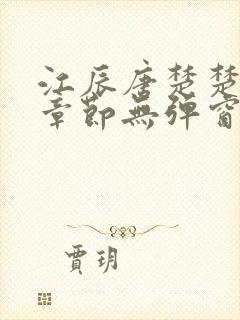 江辰唐楚楚
章節無彈窗
賈玥